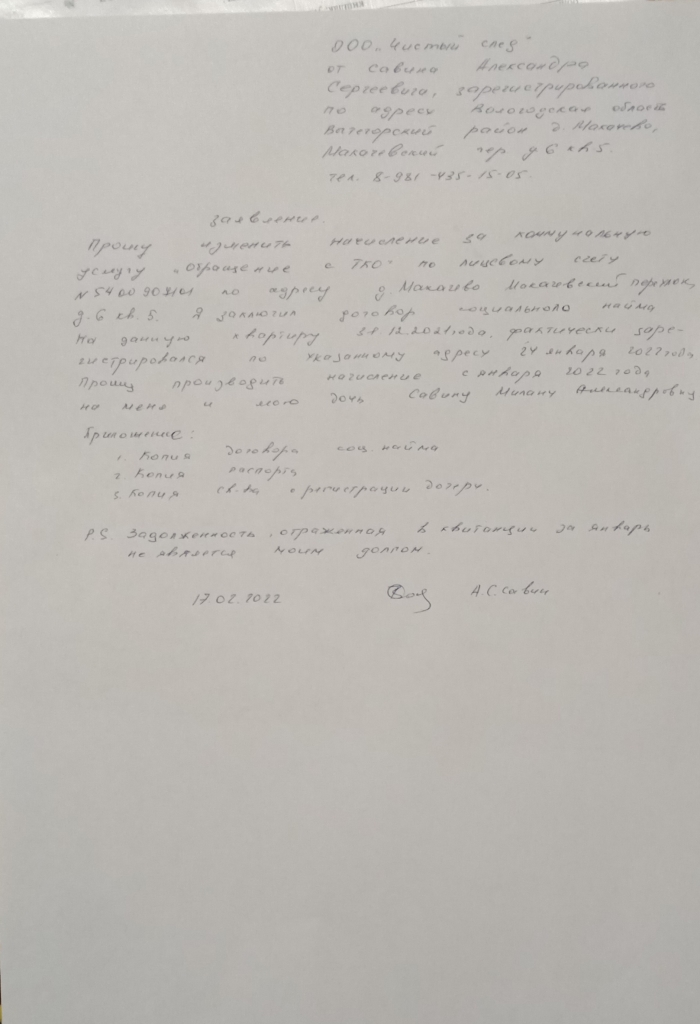 ООО "Чистый след"
от Савина Александра
Сергеевича, зарегистрированного
по адресу Вологодская область
Вытегорский район д. Макачево,
Макачевский пер д 6 кв 5.
тел. 8-981-435-15-05.
заявление.
Прошу изменить начисление за коммунальную
услугу "Обращение с ТКО" по лицевому счету
по адресу д. Макачево Макачевский переулок,
д. 6 кв. 5. Я заключил договор социального найма
На данную квартиру 31.12.2021 года. фактически заре-
гистрировался по указанному адресу 24 января 2022 года
Прошу производить начисление с января 2022 года
на меня и мою дочь Савину Милану Александровну
Приложение:
1. Копия договора соц. найма
2. Копия паспорта
3. Копия св-ва о регистрации дочери.
P.S. Задолженность, отраженная в квитанции за январь
не является моим долгом.
17.02.2022 А.С. Савин